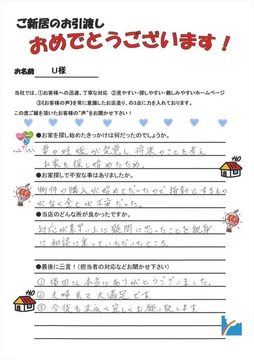 ご新居のお引渡し
おめでとうございます！
お名前 U様
当社では、①お客様への迅速、丁寧な対応 ②見やすい・探しやすい・親しみやすいホームページ
③《お客様の声》を常に意識したお店造り、の3点に力を入れております。
この度ご縁を頂いたお客様の“声”をお聞かせ下さい！
●お家を探し始めたきっかけは何だったのでしょうか。
妻の妊娠が発覚し、将来のことを考え
お家を探し始めたため。
●お家探しで不安な事はありましたか。
物件の購入が始めてだったので指針とするもの
がなく全てが不安だった。
●当店のどんな所が良かったですか。
対応が素早い上に疑問に思ったことを親身
に相談に乗っていただいたところ。
●最後に三言！（担当者の対応などお聞かせ下さい）
① 本当にありがとうございました。
② 夫婦共々大満足です
③ 今後も末永く宜しくお願い致します